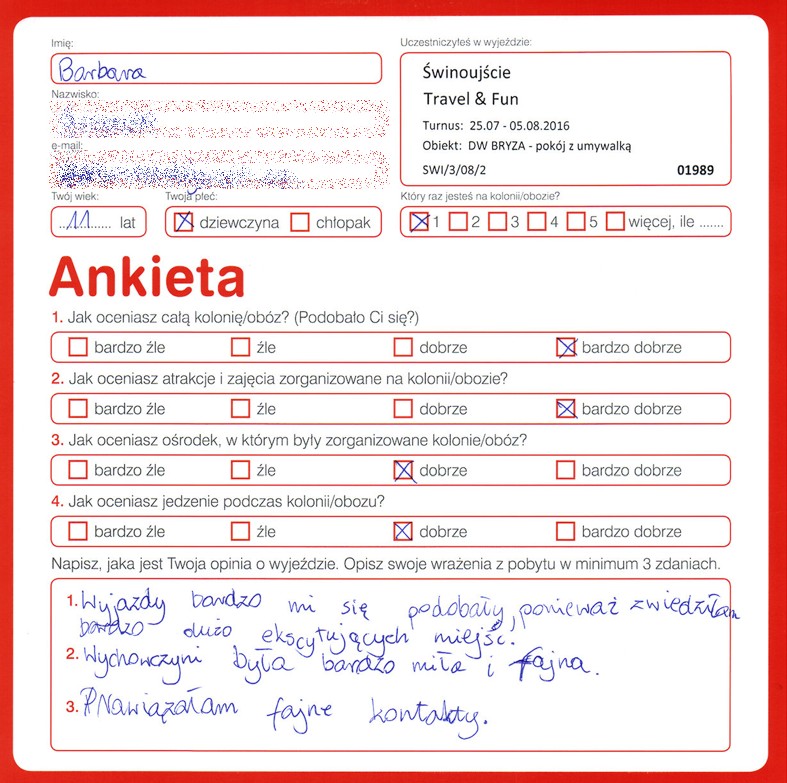 Imię:
Barbara
Nazwisko:
e-mail:
Uczestniczyłeś w wyjeździe:
Świnoujście
Travel & Fun
Turnus: 25.07 - 05.08.2016
Obiekt: DW BRYZA - pokój z umywalką
SWI/3/08/2 01989
Twój wiek:
..11...... lat
Twoja płeć:
dziewczyna chłopak
Który raz jesteś na kolonii/obozie?
1 2 3 4 5 więcej, ile .......
Ankieta
1. Jak oceniasz całą kolonię/obóz? (Podobało Ci się?)
bardzo źle źle dobrze bardzo dobrze
2. Jak oceniasz atrakcje i zajęcia zorganizowane na kolonii/obozie?
bardzo źle źle dobrze bardzo dobrze
3. Jak oceniasz ośrodek, w którym były zorganizowane kolonie/obóz?
bardzo źle źle dobrze bardzo dobrze
4. Jak oceniasz jedzenie podczas kolonii/obozu?
bardzo źle źle dobrze bardzo dobrze
Napisz, jaka jest Twoja opinia o wyjeździe. Opisz swoje wrażenia z pobytu w minimum 3 zdaniach.
1. Wyjazdy bardzo mi się podobały, ponieważ zwiedziłam
bardzo dużo ekscytujących miejsc.
2. Wychowczyni była bardzo miła i fajna.
3. Nawiązałam fajne kontakty.